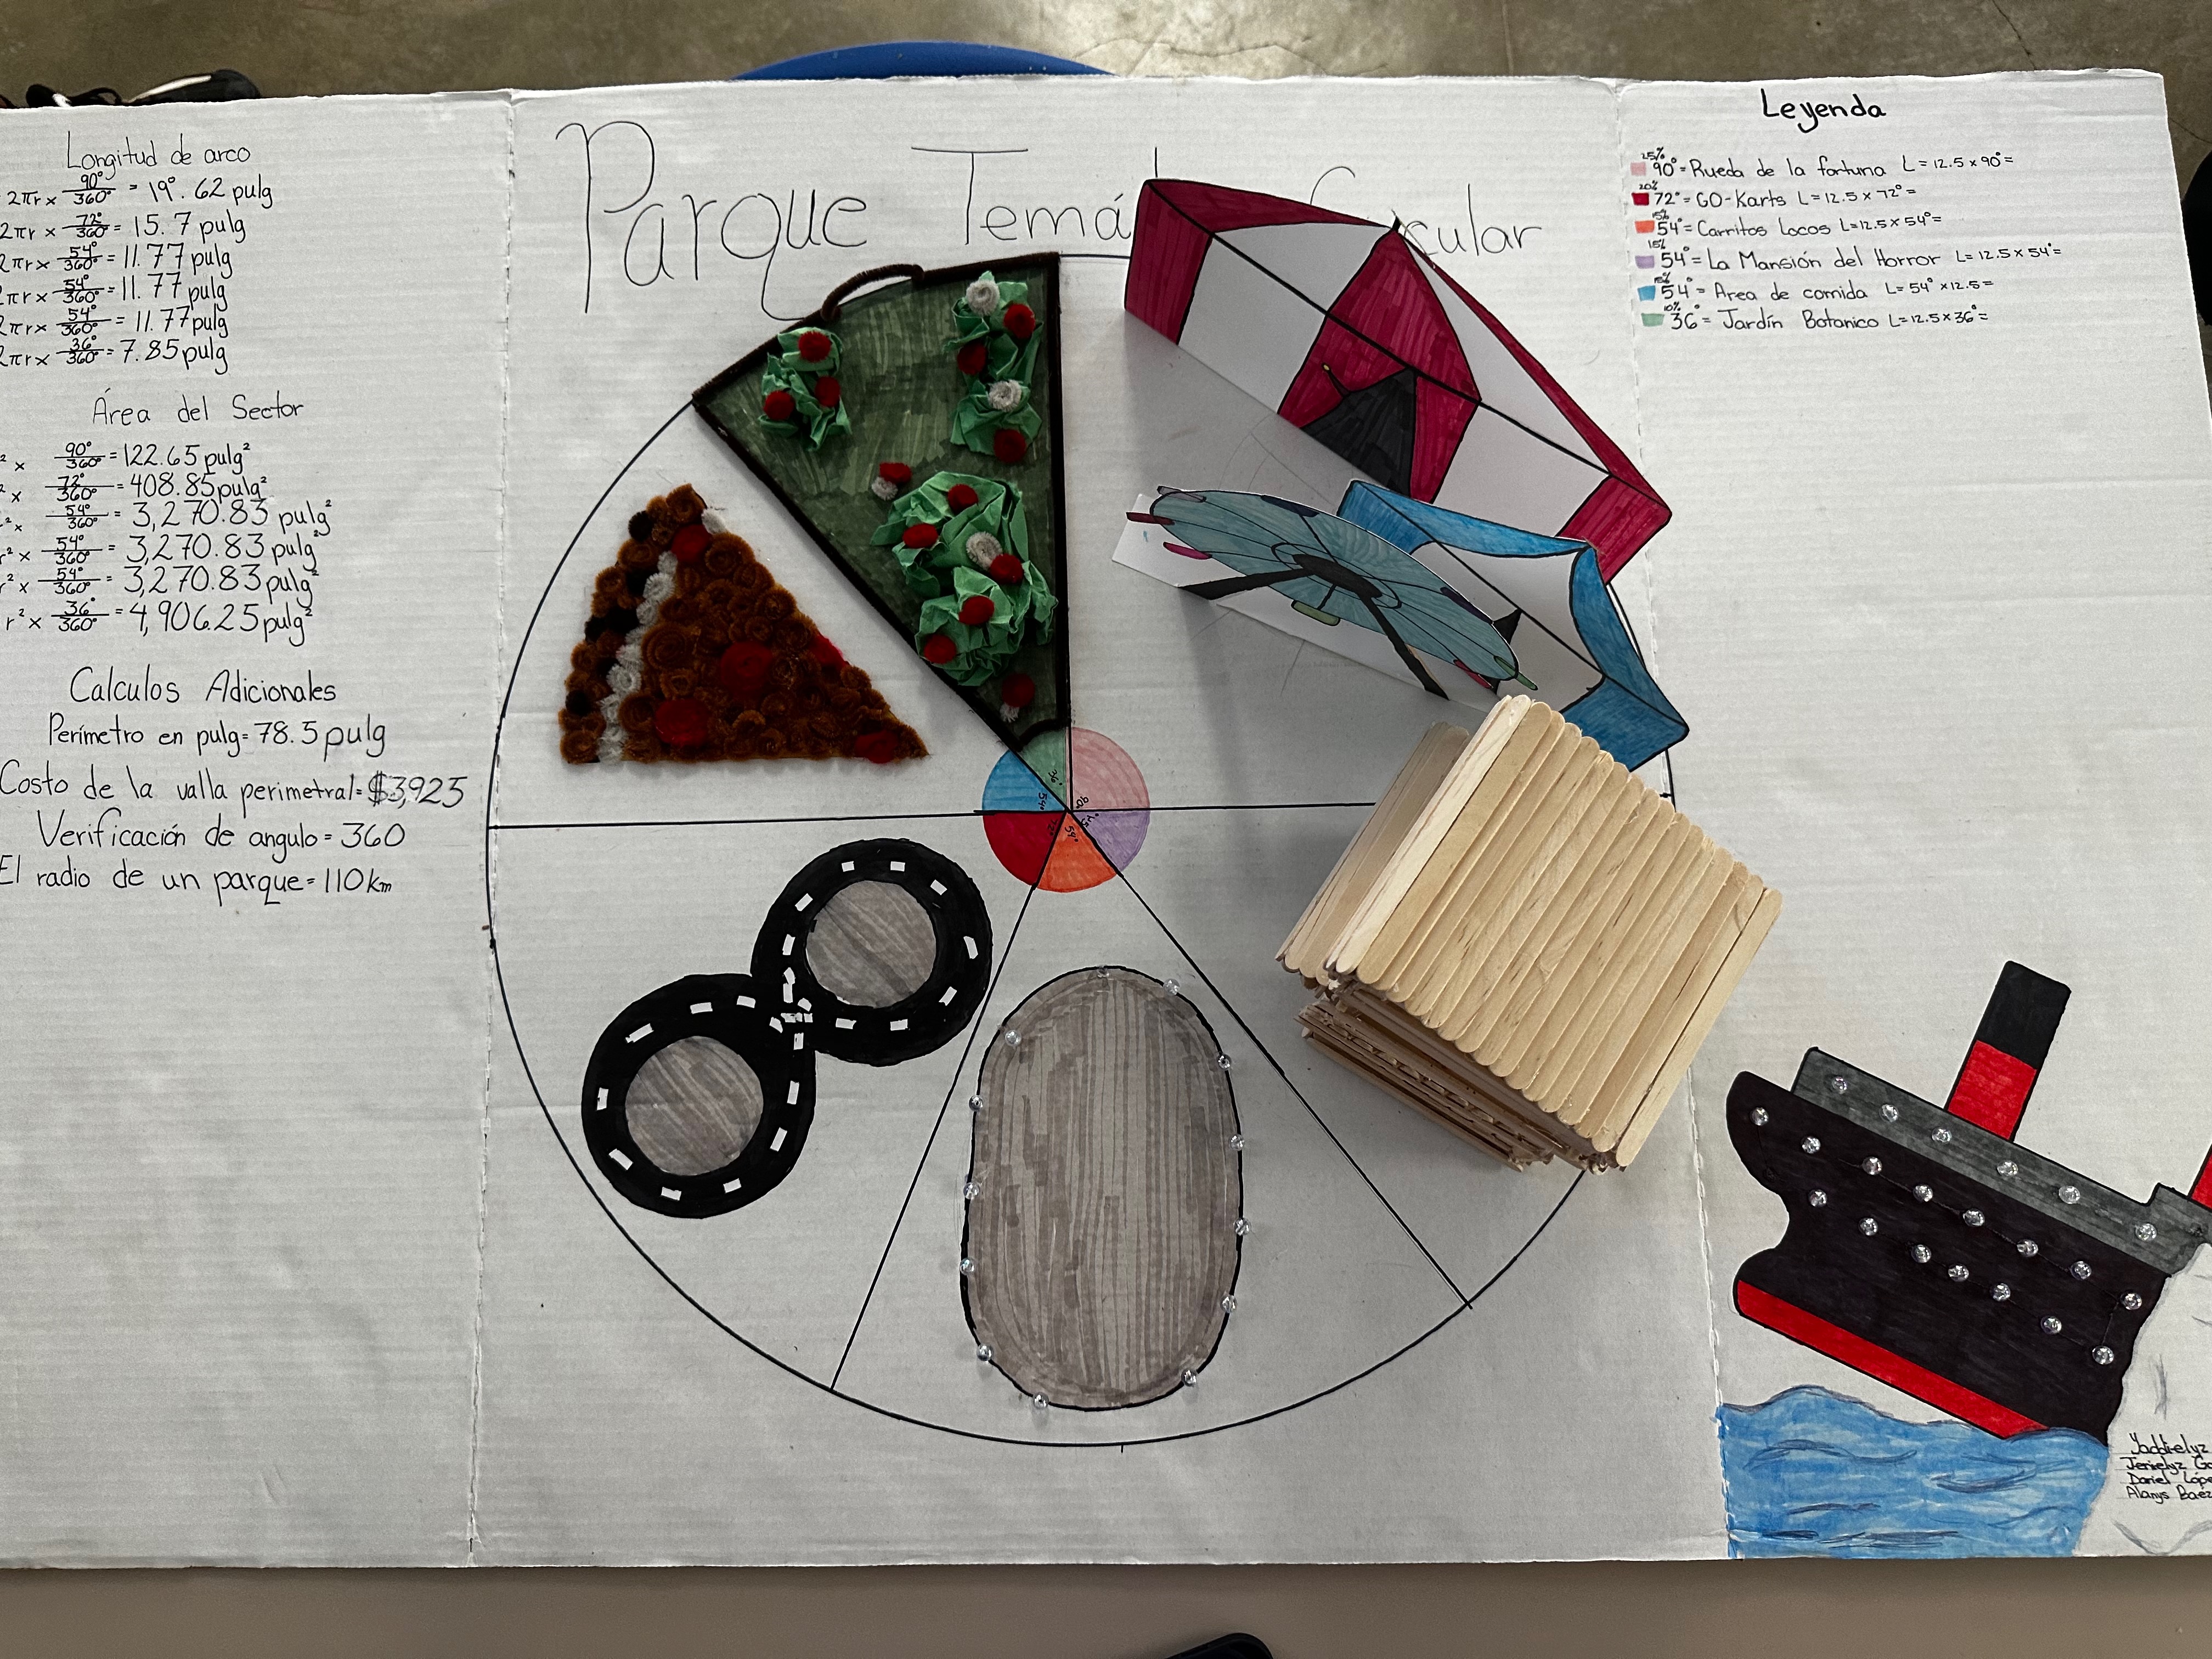 Parque Temá cular
Longitud de arco
2πr x 90°/360° = 19°.62 pulg
2πr x 72°/360° = 15.7 pulg
2πr x 54°/360° = 11.77 pulg
2πr x 54°/360° = 11.77 pulg
2πr x 54°/360° = 11.77 pulg
2πr x 36°/360° = 7.85 pulg
Área del Sector
² x 90°/360° = 122.65 pulg²
² x 72°/360° = 408.85 pulg²
² x 54°/360° = 3,270.83 pulg²
r² x 54°/360° = 3,270.83 pulg²
r² x 54°/360° = 3,270.83 pulg²
r² x 36°/360° = 4,906.25 pulg²
Calculos Adicionales
Perímetro en pulg = 78.5 pulg
Costo de la valla perimetral = $3,925
Verificación de angulo = 360
El radio de un parque = 110 km
36°
90°
54°
54°
Leyenda
25%
90° = Rueda de la fortuna L = 12.5 x 90° =
20%
72° = GO-Karts L = 12.5 x 72° =
15%
54° = Carritos Locos L = 12.5 x 54° =
15%
54° = La Mansión del Horror L = 12.5 x 54° =
15%
54° = Area de comida L = 54° x 12.5 =
10%
36° = Jardín Botanico L = 12.5 x 36° =
Yaddielyz
Daniel Lópe
Alanys Baez